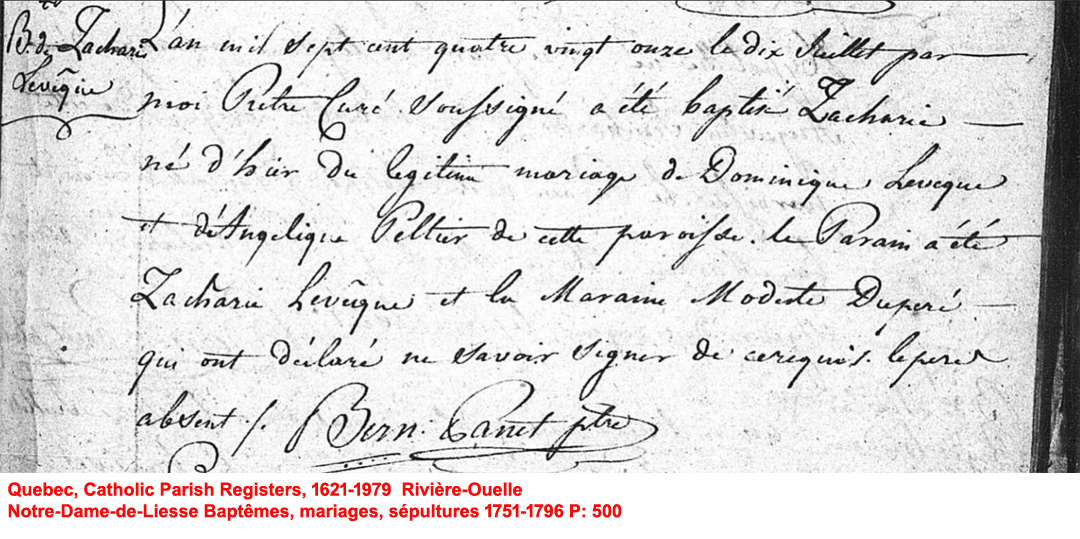 B. de Zacharie
Levêque
L'an mil sept cent quatre vingt onze le dix Juillet par
moi Prêtre Curé soussigné a été baptisé Zacharie
né d'hier du legitime mariage de Dominique Leveque
et d'Angelique Peltier de cette paroisse. le Parain a été
Zacharie Levêque et la Maraine Modeste Duperé
qui ont déclaré ne savoir signer de ce requis. le pere
absent ./.
Bern. Panet ptre
Quebec, Catholic Parish Registers, 1621-1979 Rivière-Ouelle
Notre-Dame-de-Liesse Baptêmes, mariages, sépultures 1751-1796 P: 500